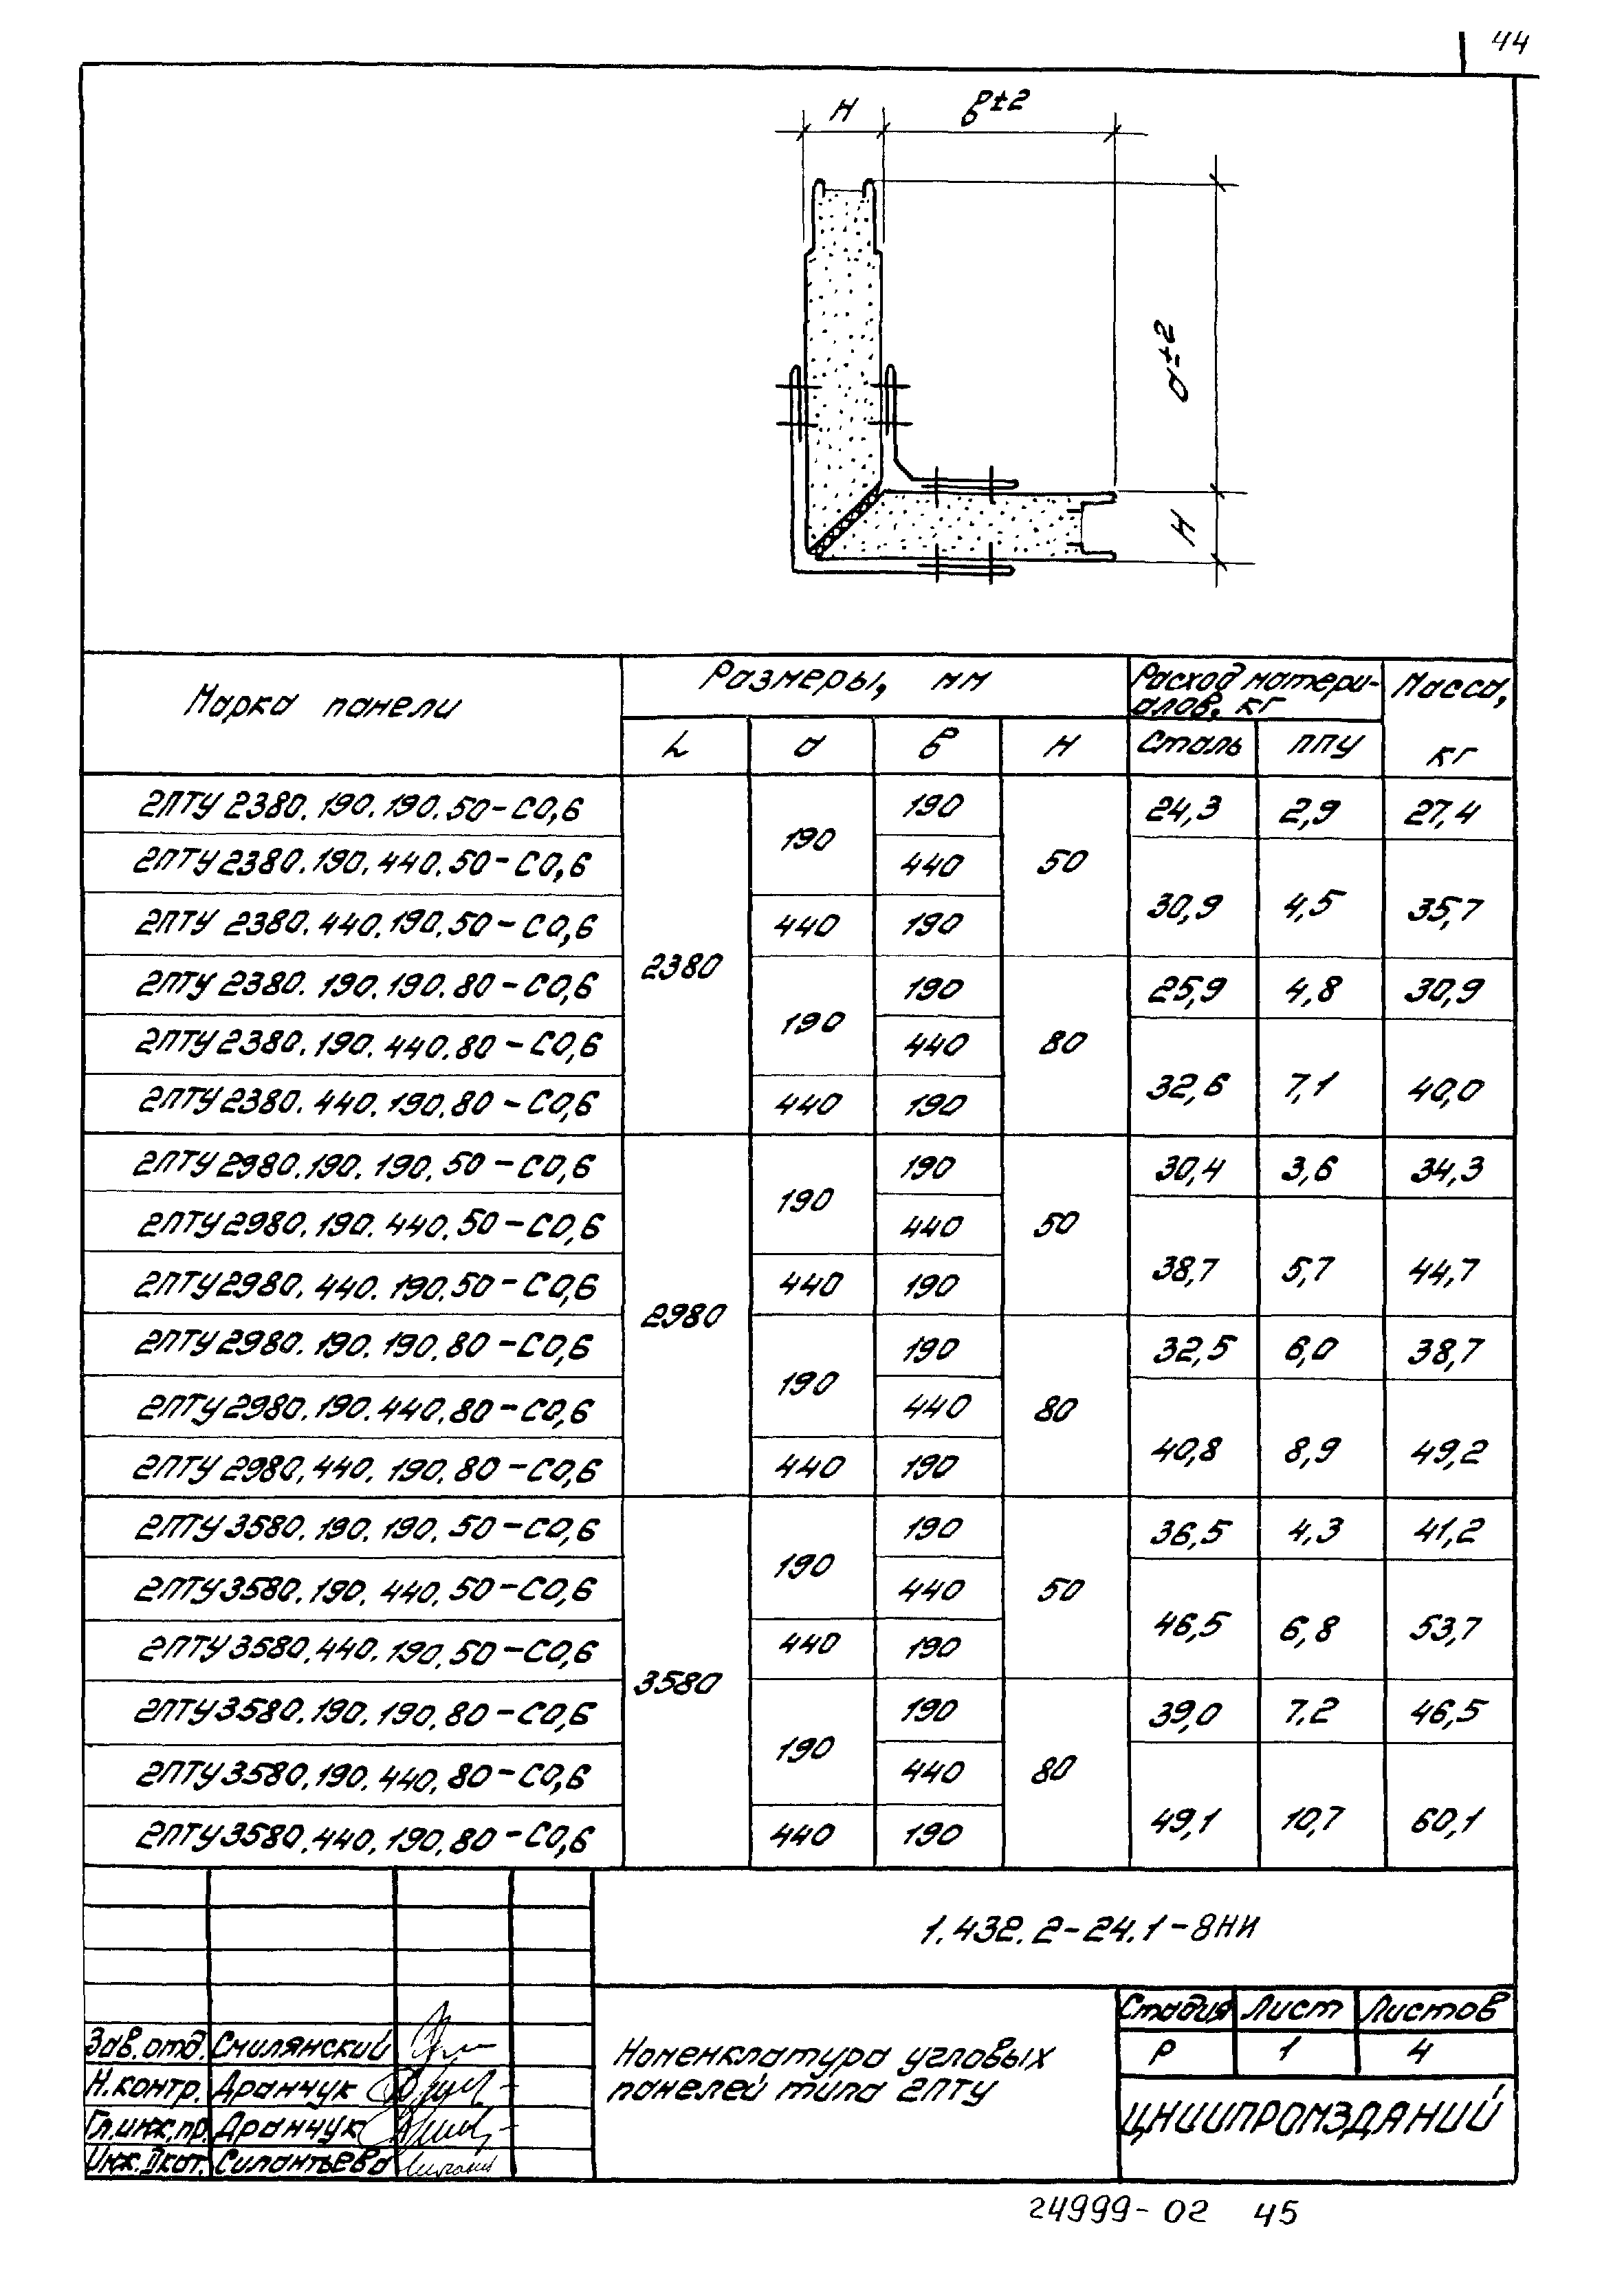 44
H в±2
а±2
H
Марка панели Размеры, мм Расход матери-алов, кг Масса, кг
L а в H Сталь ППУ
2ПТУ 2380.190.190.50-С0,6 2380 190 190 50 24,3 2,9 27,4
2ПТУ 2380.190.440.50-С0,6 440 30,9 4,5 35,7
2ПТУ 2380.440.190.50-С0,6 440 190
2ПТУ 2380.190.190.80-С0,6 190 190 80 25,9 4,8 30,9
2ПТУ 2380.190.440.80-С0,6 440 32,6 7,1 40,0
2ПТУ 2380.440.190.80-С0,6 440 190
2ПТУ 2980.190.190.50-С0,6 2980 190 190 50 30,4 3,6 34,3
2ПТУ 2980.190.440.50-С0,6 440 38,7 5,7 44,7
2ПТУ 2980.440.190.50-С0,6 440 190
2ПТУ 2980.190.190.80-С0,6 190 190 80 32,5 6,0 38,7
2ПТУ 2980.190.440.80-С0,6 440 40,8 8,9 49,2
2ПТУ 2980.440.190.80-С0,6 440 190
2ПТУ 3580.190.190.50-С0,6 3580 190 190 50 36,5 4,3 41,2
2ПТУ 3580.190.440.50-С0,6 440 46,5 6,8 53,7
2ПТУ 3580.440.190.50-С0,6 440 190
2ПТУ 3580.190.190.80-С0,6 190 190 80 39,0 7,2 46,5
2ПТУ 3580.190.440.80-С0,6 440 49,1 10,7 60,1
2ПТУ 3580.440.190.80-С0,6 440 190
1.432.2-24.1-8НИ
Зав.отд. Смилянский
Н.контр. Дранчук
Гл.инж.пр. Дранчук
Инж.IIкат. Силантьева
Номенклатура угловых
панелей типа 2ПТУ
Стадия Лист Листов
Р 1 4
ЦНИИПРОМЗДАНИЙ
24999-02 45